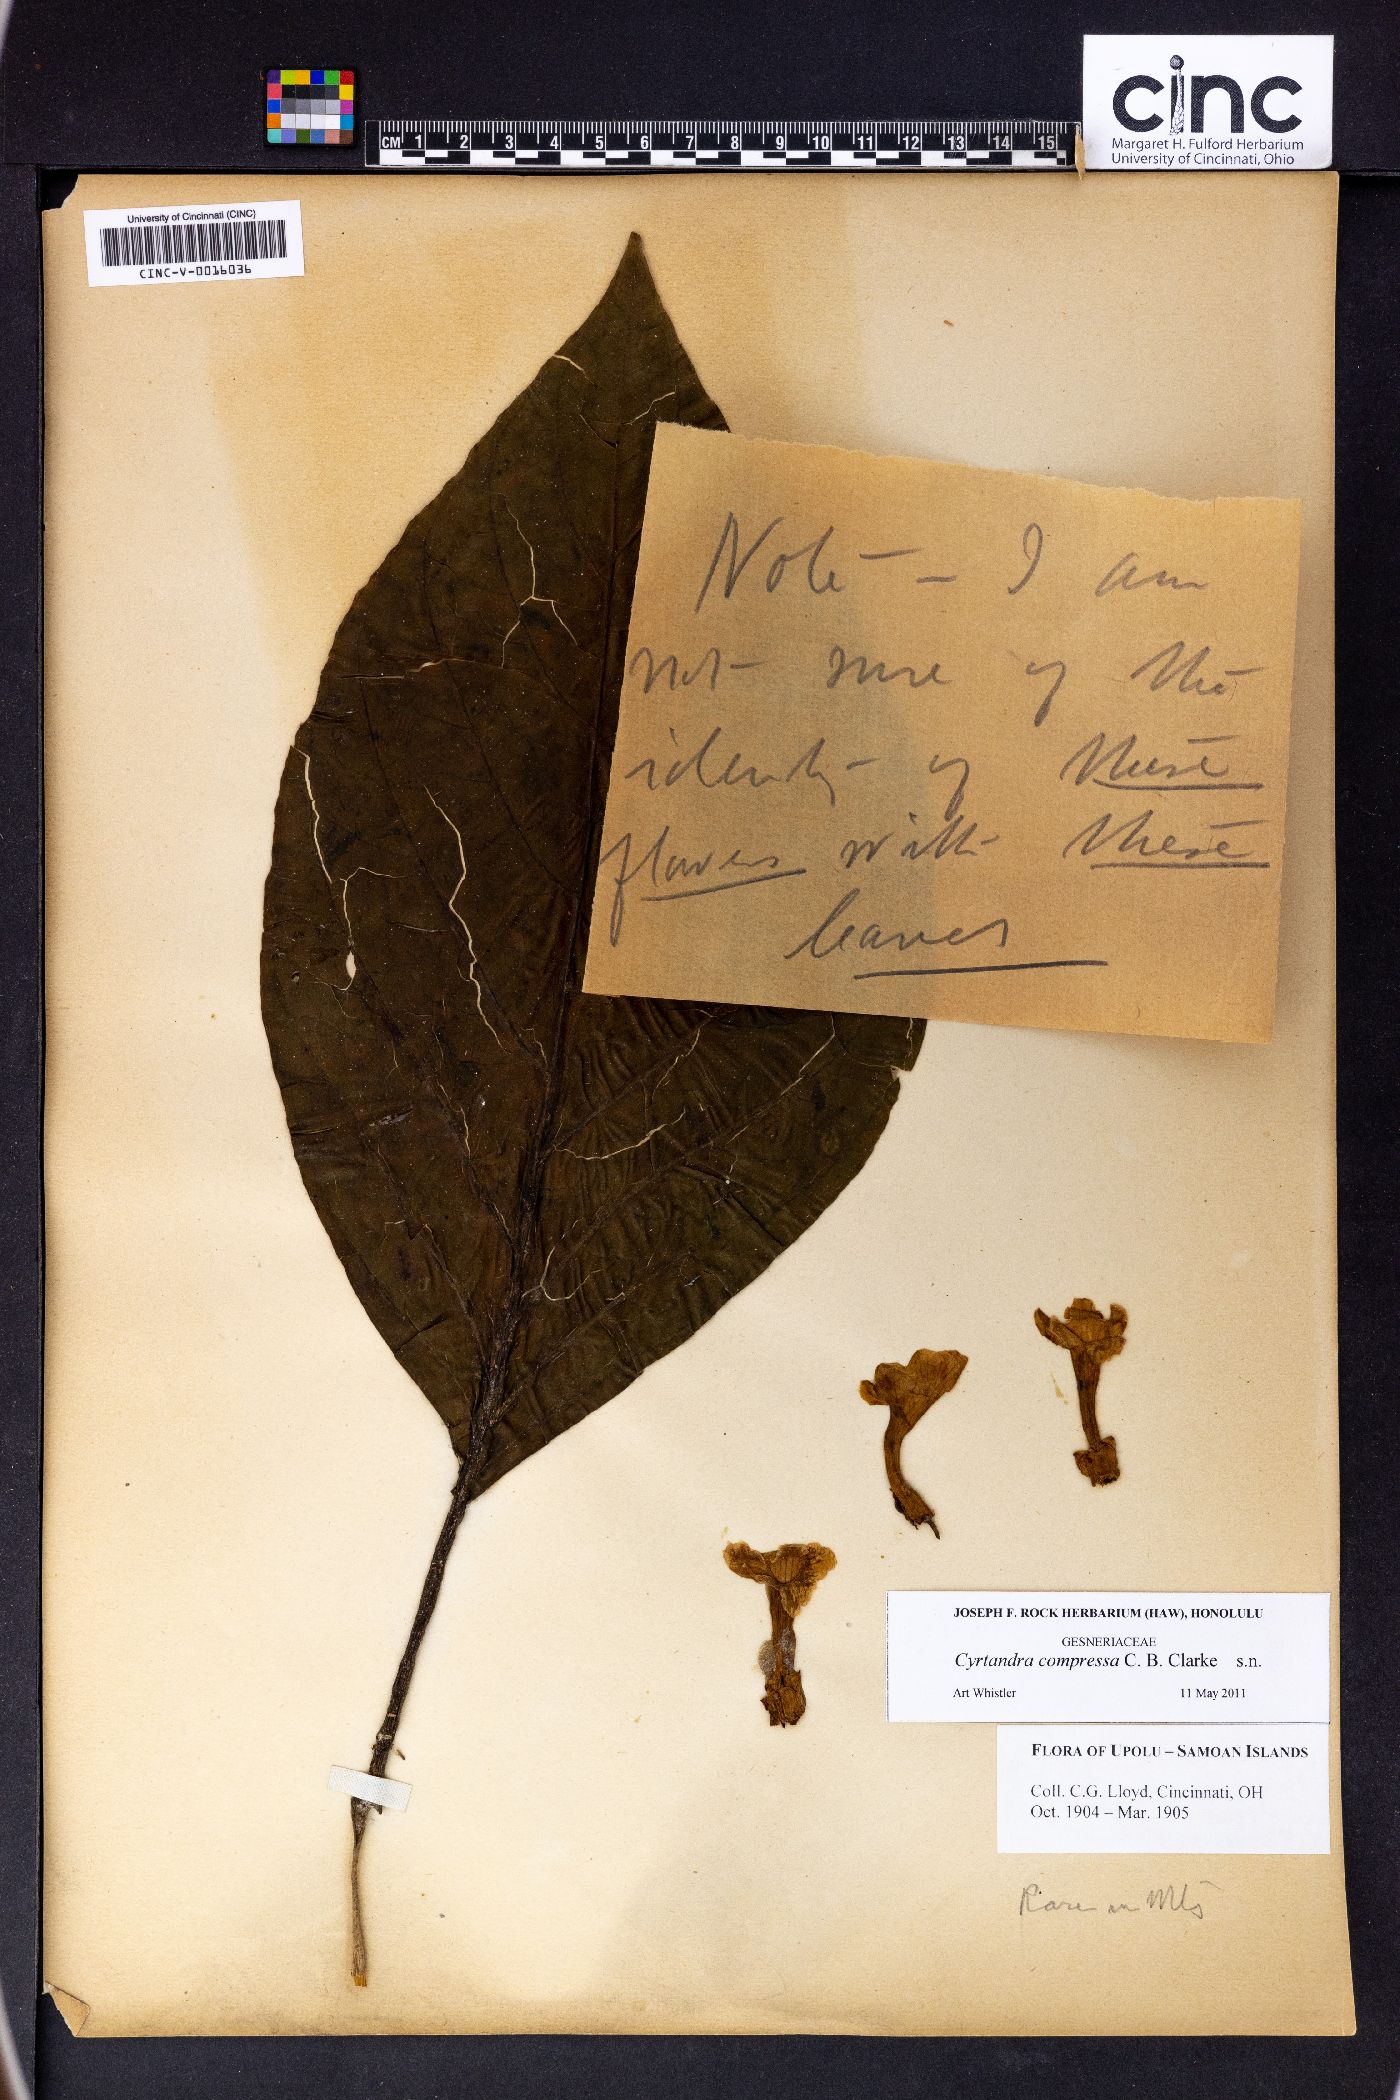 CM 1 2 3 4 5 6 7 8 9 10 11 12 13 14 15
cinc
Margaret H. Fulford Herbarium
University of Cincinnati, Ohio
University of Cincinnati (CINC)
CINC-V-0016036
Note - I am
not sure of the
identity of these
flowers with these
leaves
JOSEPH F. ROCK HERBARIUM (HAW), HONOLULU
GESNERIACEAE
Cyrtandra compressa C. B. Clarke s.n.
Art Whistler 11 May 2011
FLORA OF UPOLU – SAMOAN ISLANDS
Coll. C.G. Lloyd, Cincinnati, OH
Oct. 1904 – Mar. 1905
Rare in Mts